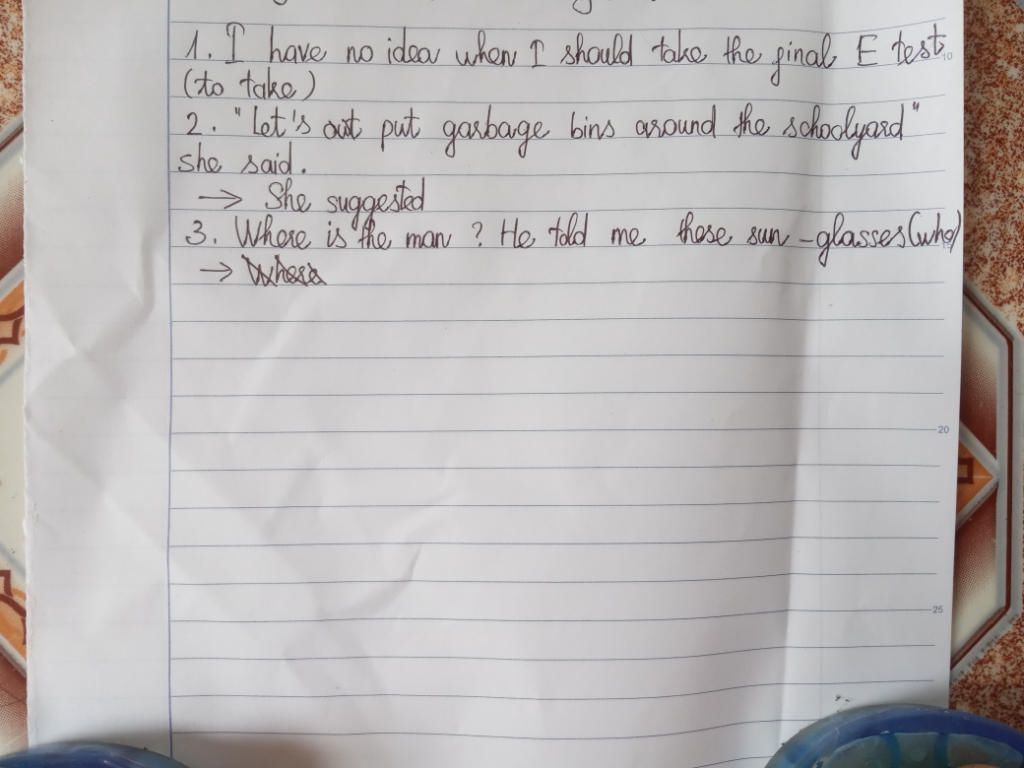 1. I have no idea when I should take the final E test
(to take)
2. "Let's put garbage bins around the schoolyard"
she said.
→ She suggested
3. Where is the man ? He told me these sun-glasses(who)
→
10
20
25